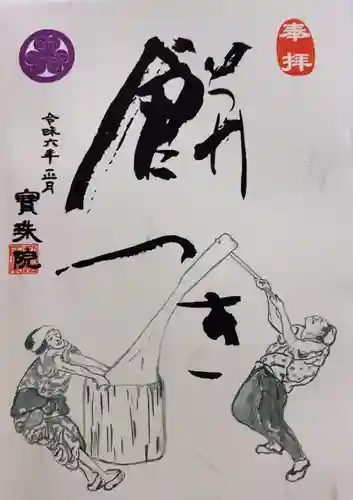 奉拝
餅
つき
令和六年 正月
寳珠院